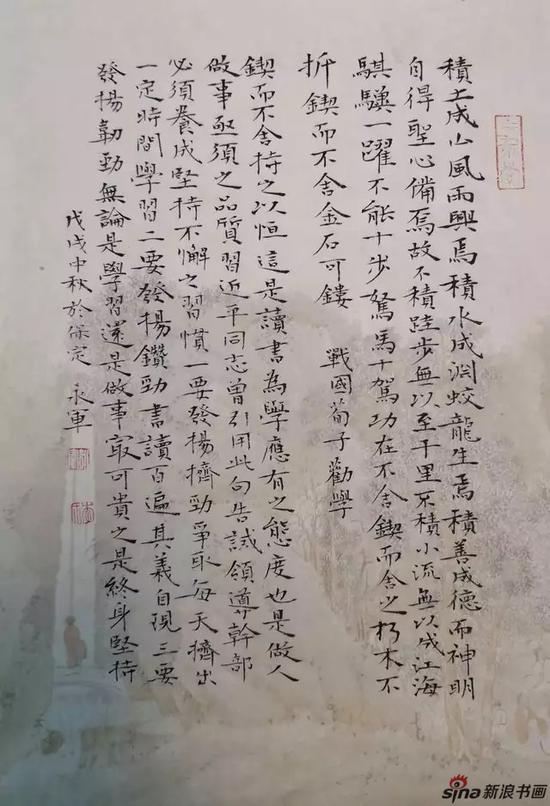 積土成山風雨興焉積水成淵蛟龍生焉積善成德而神明
自得聖心備焉故不積跬步無以至千里不積小流無以成江海
騏驥一躍不能十步駑馬十駕功在不舍鍥而舍之朽木不
折鍥而不舍金石可鏤 戰國荀子勸學
鍥而不舍持之以恒這是讀書為學應有之態度也是做人
做事亟須之品質習近平同志曾引用此句告誡領導幹部
必須養成堅持不懈之習慣一要發揚擠勁爭取每天擠出
一定時間學習二要發揚鑽勁書讀百遍其義自現三要
發揚韌勁無論是學習還是做事最可貴之是終身堅持
戊戌中秋於保定 永軍
sina新浪书画